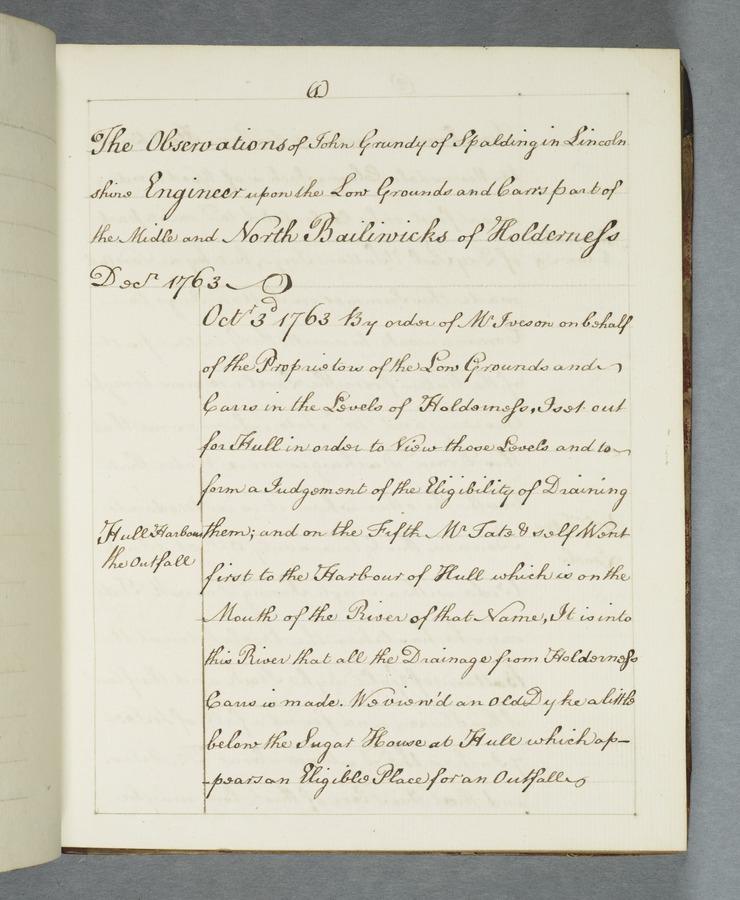 (1)
The Observations of John Grundy of Spalding in Lincoln
shire Engineer upon the Low Grounds and Carrs part of
the Midle and North Bailiwicks of Holderness
Decr 1763
Octr 3d 1763 By order of Mr Iveson on behalf
of the Proprietors of the Low Grounds and
Carrs in the Levels of Holderness, I set out
for Hull in order to View those Levels and to
form a Judgement of the Eligibility of Draining
Hull Harbour
the Outfall
them; and on the Fifth Mr Tate & self Went
first to the Harbour of Hull which is on the
Mouth of the River of that Name, It is into
this River that all the Drainage from Holderness
Carrs is made. We view'd an old Dyke a little
below the Sugar House at Hull which ap-
-pears an Eligible Place for an Outfall